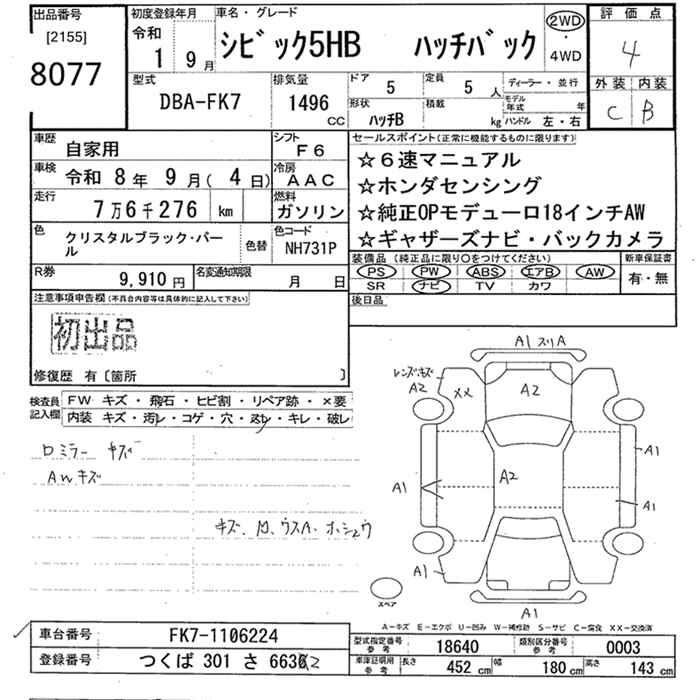 出品番号
[2155]
8077
初度登録年月
令和
1 9月
車名・グレード
シビック5HB ハッチバック
2WD
・
4WD
評価点
4
外装 内装
C B
型式
DBA-FK7
排気量
1496
CC
ドア
5
定員
5人
形状
ハッチB
積載
kg
ディーラー・並行
モデル年式 年
ハンドル 左・右
車歴
自家用
シフト
F6
車検
令和 8年 9月( 4日)
冷房
AAC
走行
7万6千276 km
燃料
ガソリン
色
クリスタルブラック・パール
色替
色コード
NH731P
R券
9,910円
名変通知期限
月 日
セールスポイント(正常に機能するものに限ります)
☆6速マニュアル
☆ホンダセンシング
☆純正OPモデューロ18インチAW
☆ギャザーズナビ・バックカメラ
装備品(純正品に限り○をつけてください)
PS PW ABS エアB AW
SR ナビ TV カワ
新車保証書
有・無
後日品
注意事項申告欄(不具合内容等は具体的に記入して下さい)
初出品
修復歴 有〔箇所 〕
検査員記入欄
FW キズ・飛石・ヒビ割・リペア跡・×要
内装 キズ・汚レ・コゲ・穴・スレ・キレ・破レ
ロミラー キズ
AW キズ
キズ、凹、ウスA・ホシュウ
A1 スリA
レンズ・キズ
A2
XX
A2
A1
A2
A1
A1
A1
A1
スペア
A-キズ E-エクボ U-凹み W-補修跡 S-サビ C-腐食 XX-交換済
車台番号
FK7-1106224
登録番号
つくば 301 さ 663
型式指定番号
参考
18640
類別区分番号
参考
0003
車庫証明用
参考
長さ
452 cm
幅
180 cm
高さ
143 cm